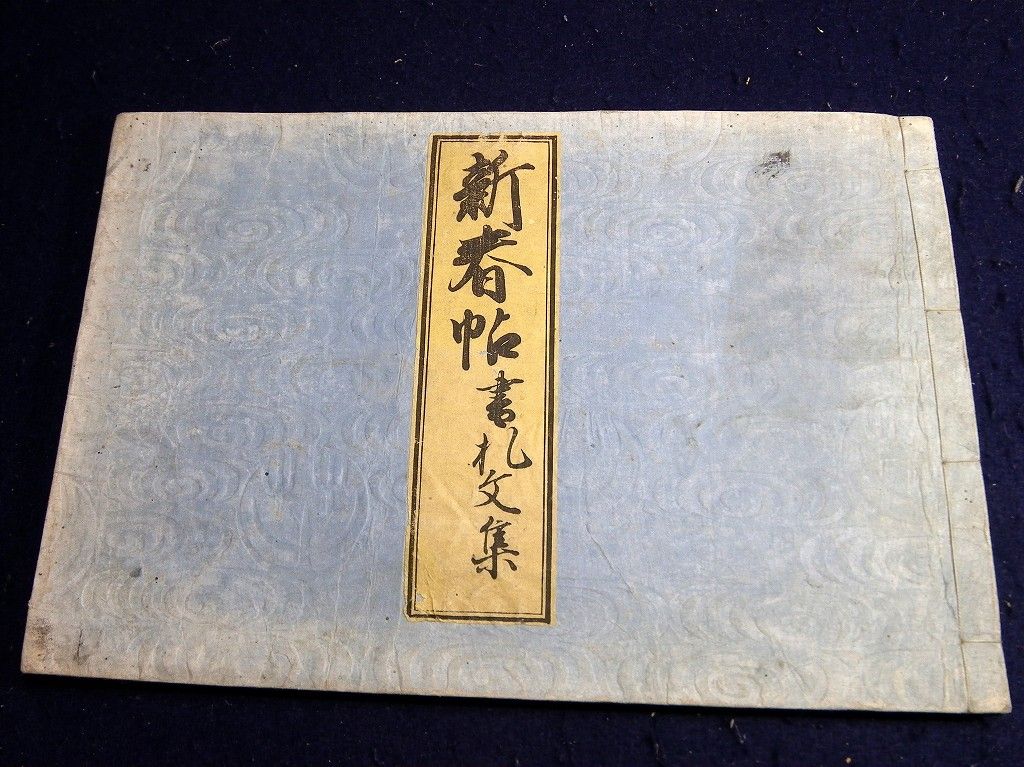 新春帖書札文集